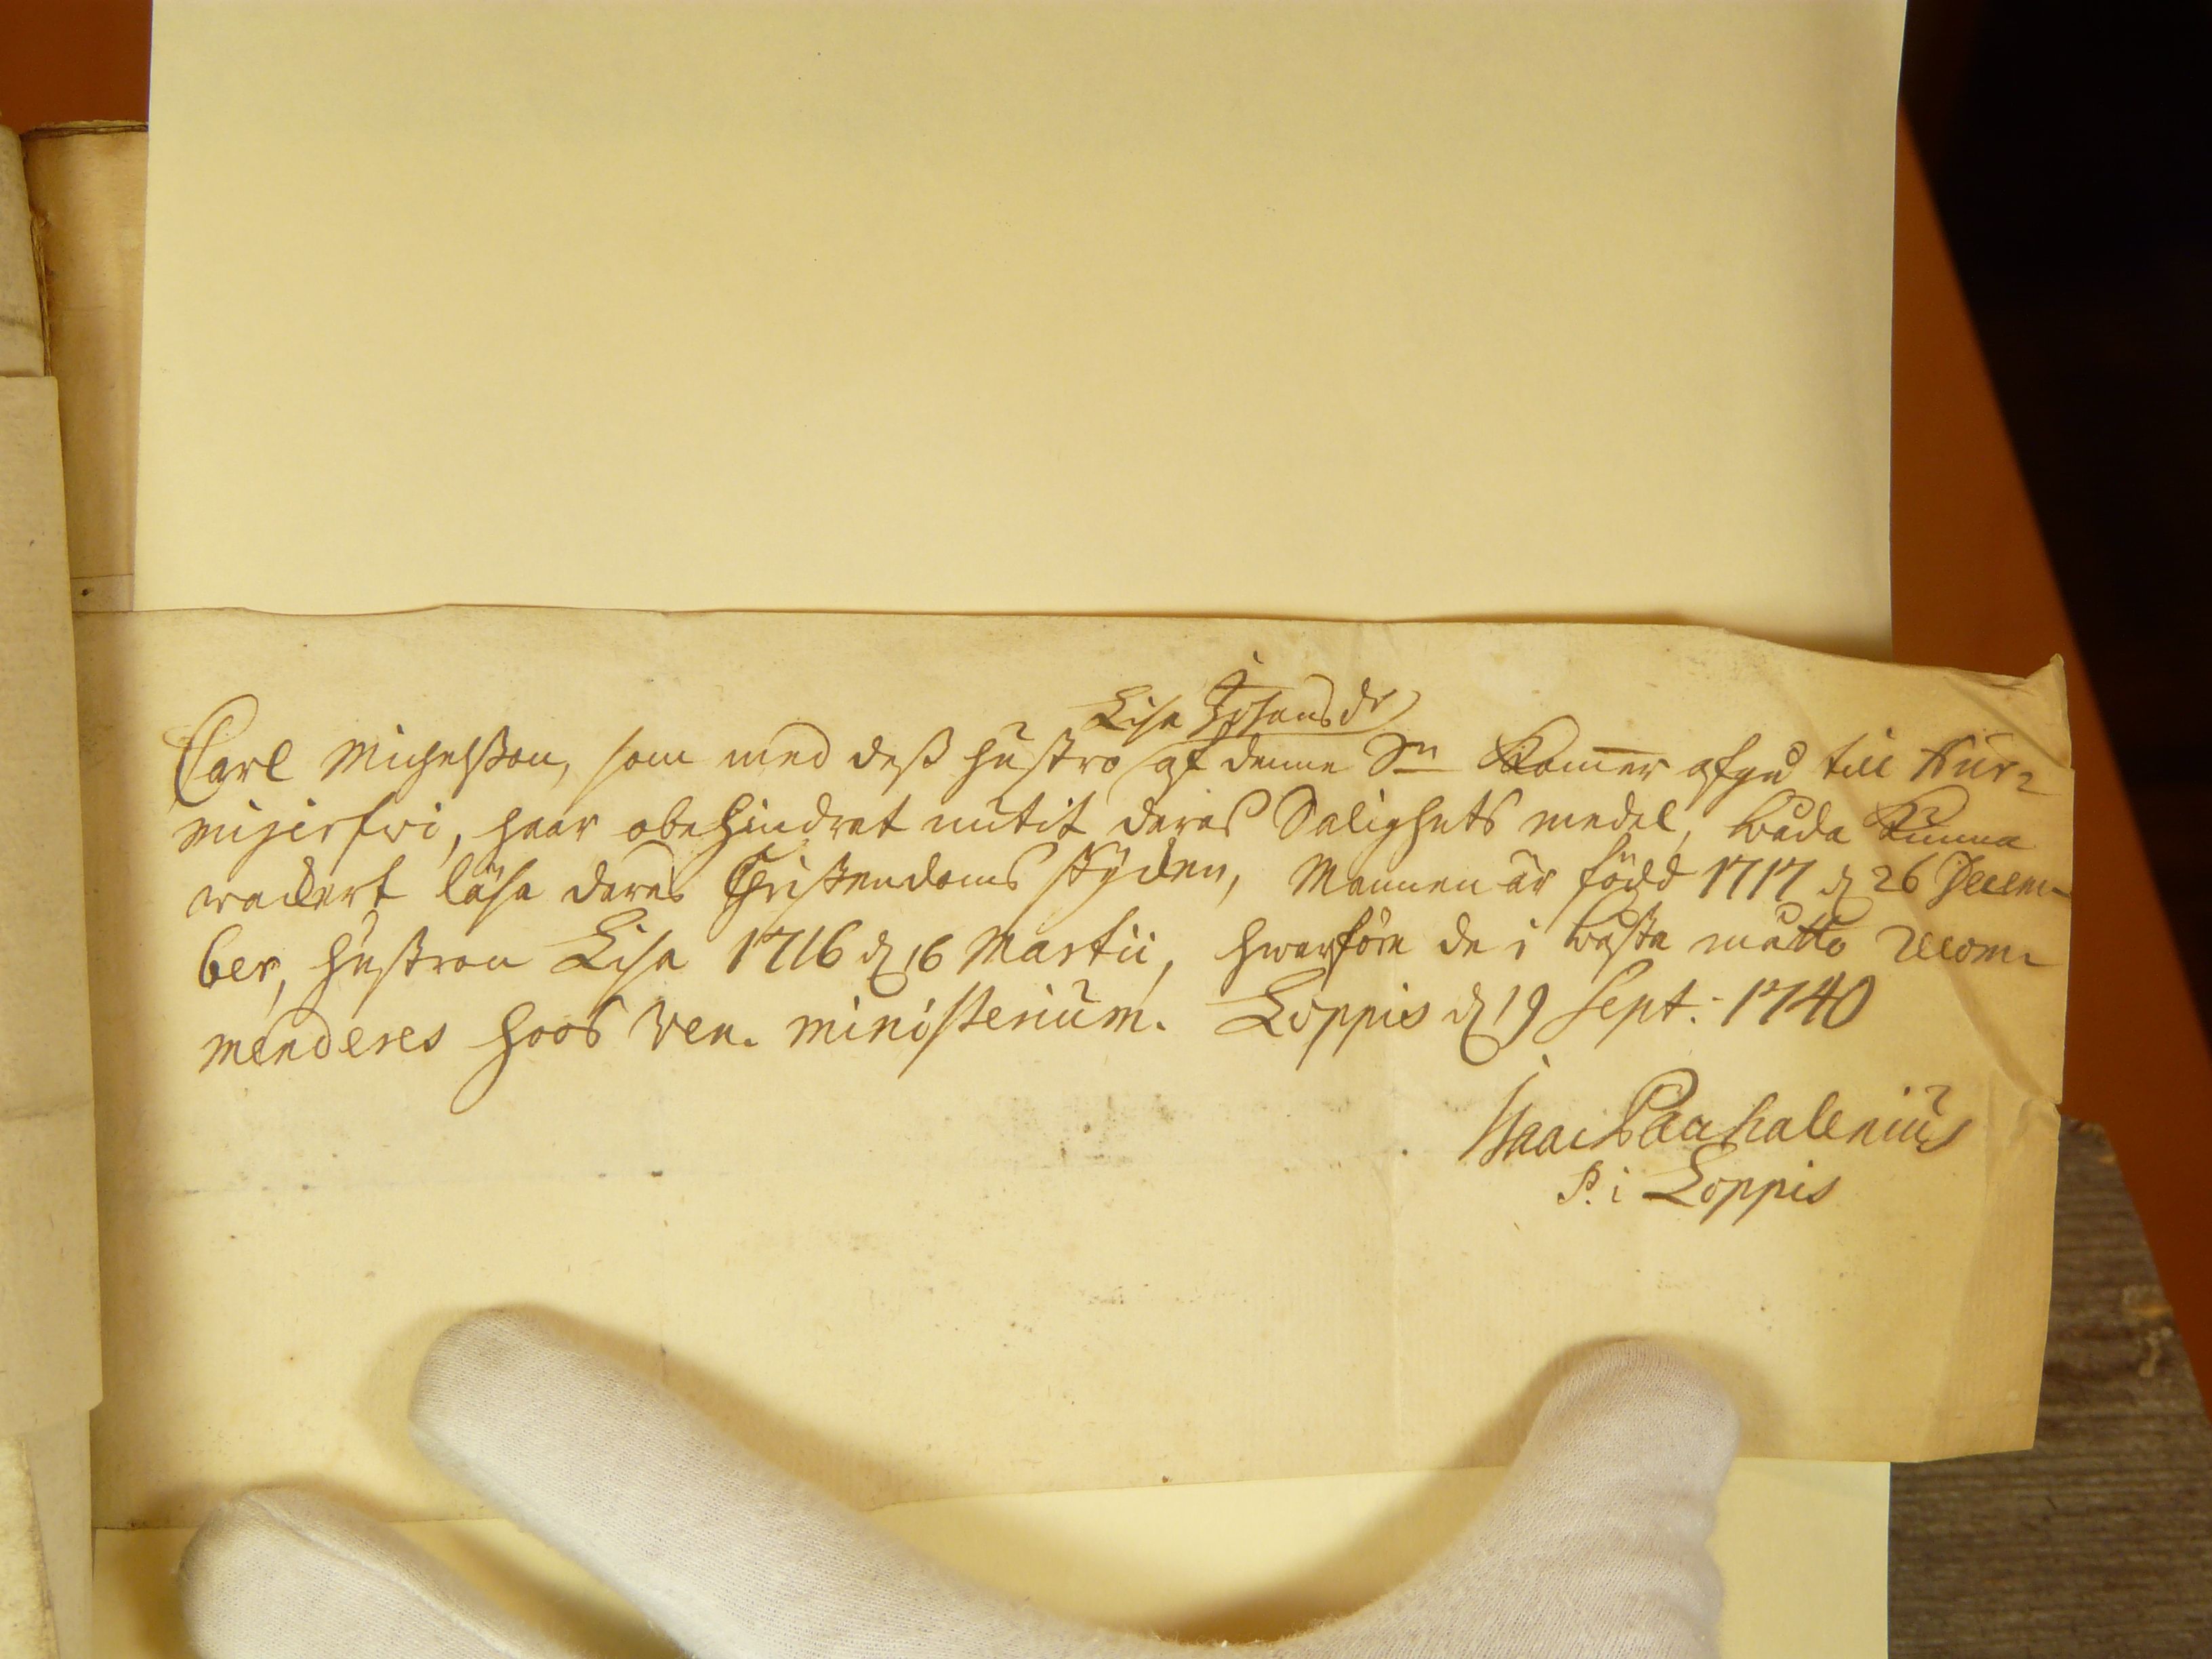 Lisa Johansdr
Carl Michelsson, som med dess hustro af denne Sn kommer afgå till Nur-
mijerfvi, haar obehindrat nutit deras Salighets medel, båda kunna
wackert läsa deras Christendoms stycken, Mannen är född 1717 d 26 Decem-
ber, hustron Lisa 1716 d 16 Martii, hwarföre de i bästa måtto recom-
menderes hoos Ven. ministerium. Loppis d 19 Sept: 1740
Isaac Pachalenius
P. i Loppis